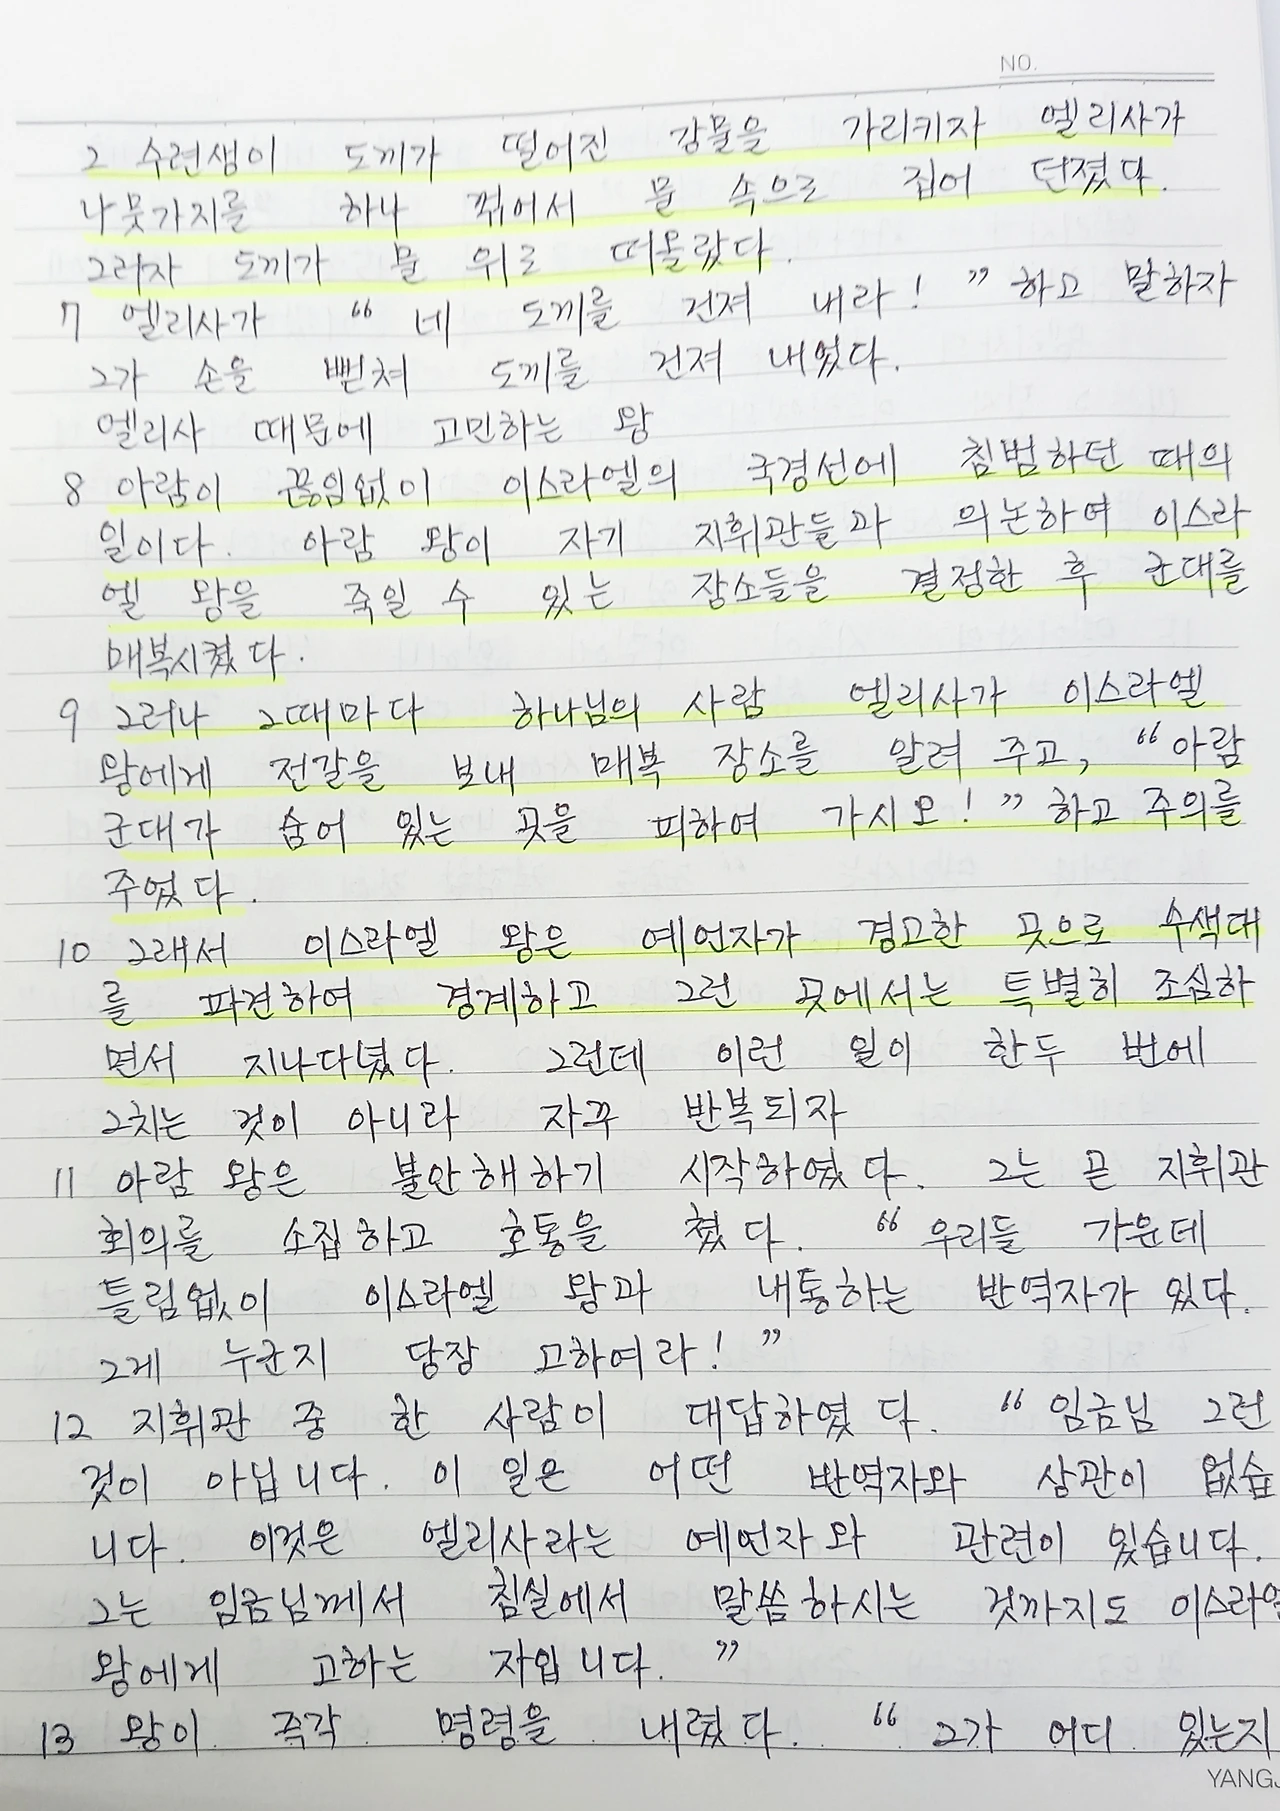 NO.
2 수련생이 도끼가 떨어진 강물을 가리키자 엘리사가
나뭇가지를 하나 꺾어서 물 속으로 집어 던졌다.
그러자 도끼가 물 위로 떠올랐다.
7 엘리사가 “ 네 도끼를 건져 내라! ” 하고 말하자
그가 손을 뻗쳐 도끼를 건져 내었다.
엘리사 때문에 고민하는 왕
8 아람이 끊임없이 이스라엘의 국경선에 침범하던 때의
일이다. 아람 왕이 자기 지휘관들과 의논하여 이스라
엘 왕을 죽일 수 있는 장소들을 결정한 후 군대를
매복시켰다.
9 그러나 그때마다 하나님의 사람 엘리사가 이스라엘
왕에게 전갈을 보내 매복 장소를 알려 주고, “아람
군대가 숨어 있는 곳을 피하여 가시오! ” 하고 주의를
주었다.
10 그래서 이스라엘 왕은 예언자가 경고한 곳으로 수색대
를 파견하여 경계하고 그런 곳에서는 특별히 조심하
면서 지나다녔다. 그런데 이런 일이 한두 번에
그치는 것이 아니라 자꾸 반복되자
11 아람 왕은 불안해하기 시작하였다. 그는 곧 지휘관
회의를 소집하고 호통을 쳤다. “우리들 가운데
틀림없이 이스라엘 왕과 내통하는 반역자가 있다.
그게 누군지 당장 고하여라! ”
12 지휘관 중 한 사람이 대답하였다. “ 임금님 그런
것이 아닙니다. 이 일은 어떤 반역자와 상관이 없습
니다. 이것은 엘리사라는 예언자와 관련이 있습니다.
그는 임금님께서 침실에서 말씀하시는 것까지도 이스라엘
왕에게 고하는 자입니다. ”
13 왕이 즉각 명령을 내렸다. “ 그가 어디 있는지